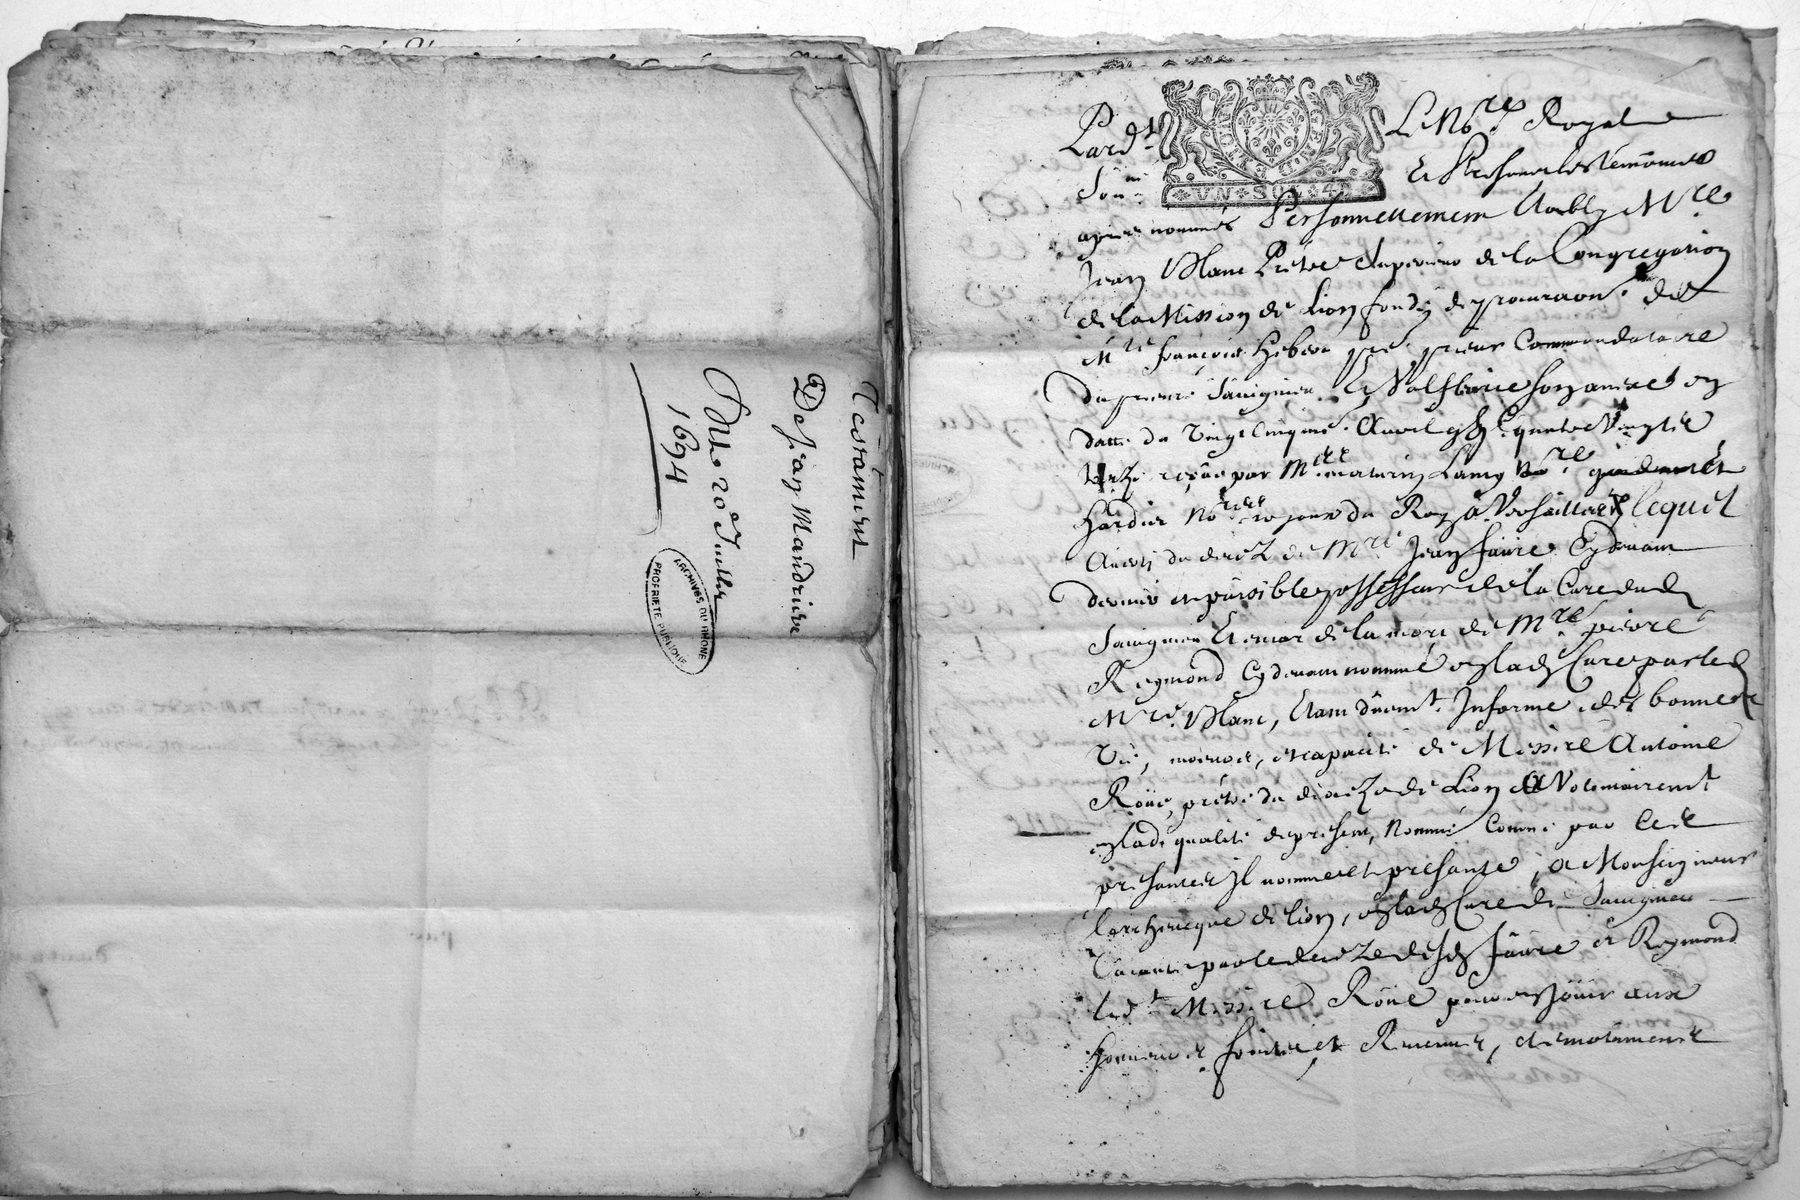 Testament
De Jean Mandrieve
Du 20e Juillet
1694
ARCHIVES DU RHONE
PROPRIETE PUBLIQUE
Pard.t Le No.re Royal
UN SOL 4D
Sous.ne Et Presence les temoins
apres nommés Personnellement Estably M.re
Jean Blanc Prêtre Superieur de la Congregation
de la Mission de Lion fondé de procuraon. de
M.re françois Hebert pre. prieur Commandataire
du prieuré Savignieu Et son annexe en
datte du Vingt Cinquie. Avril Quatre Vingt
receue par M.re No.re
Hardier No.res du Roy a Versailles lequel
Averti du decez de M.re Jean faure Cydevant
dernier et paisible possesseur de la Cure dud.
Savignieu Et encor de la mort de M.re pierre
Reymond Cydevant nommé a lad. Cure par led.
M.re Blanc, Etant düem.t Informé des bonnes
Vie, moeurs, et capacité de Messire Antoine
Roüe, prêtre du diocèze de Lion a Volontairem.t
en lad. qualité de present, Nommé Comme par Ces
presantes Il nomme et presante, a Monseigneur
larchevecque de lion, en lad. Cure de Savignieu
Vacante par le decez desd. faure et Reymond
led.t Messire Roüe pour en Joüir aux
honneurs fruits et Revenus, et emoluments